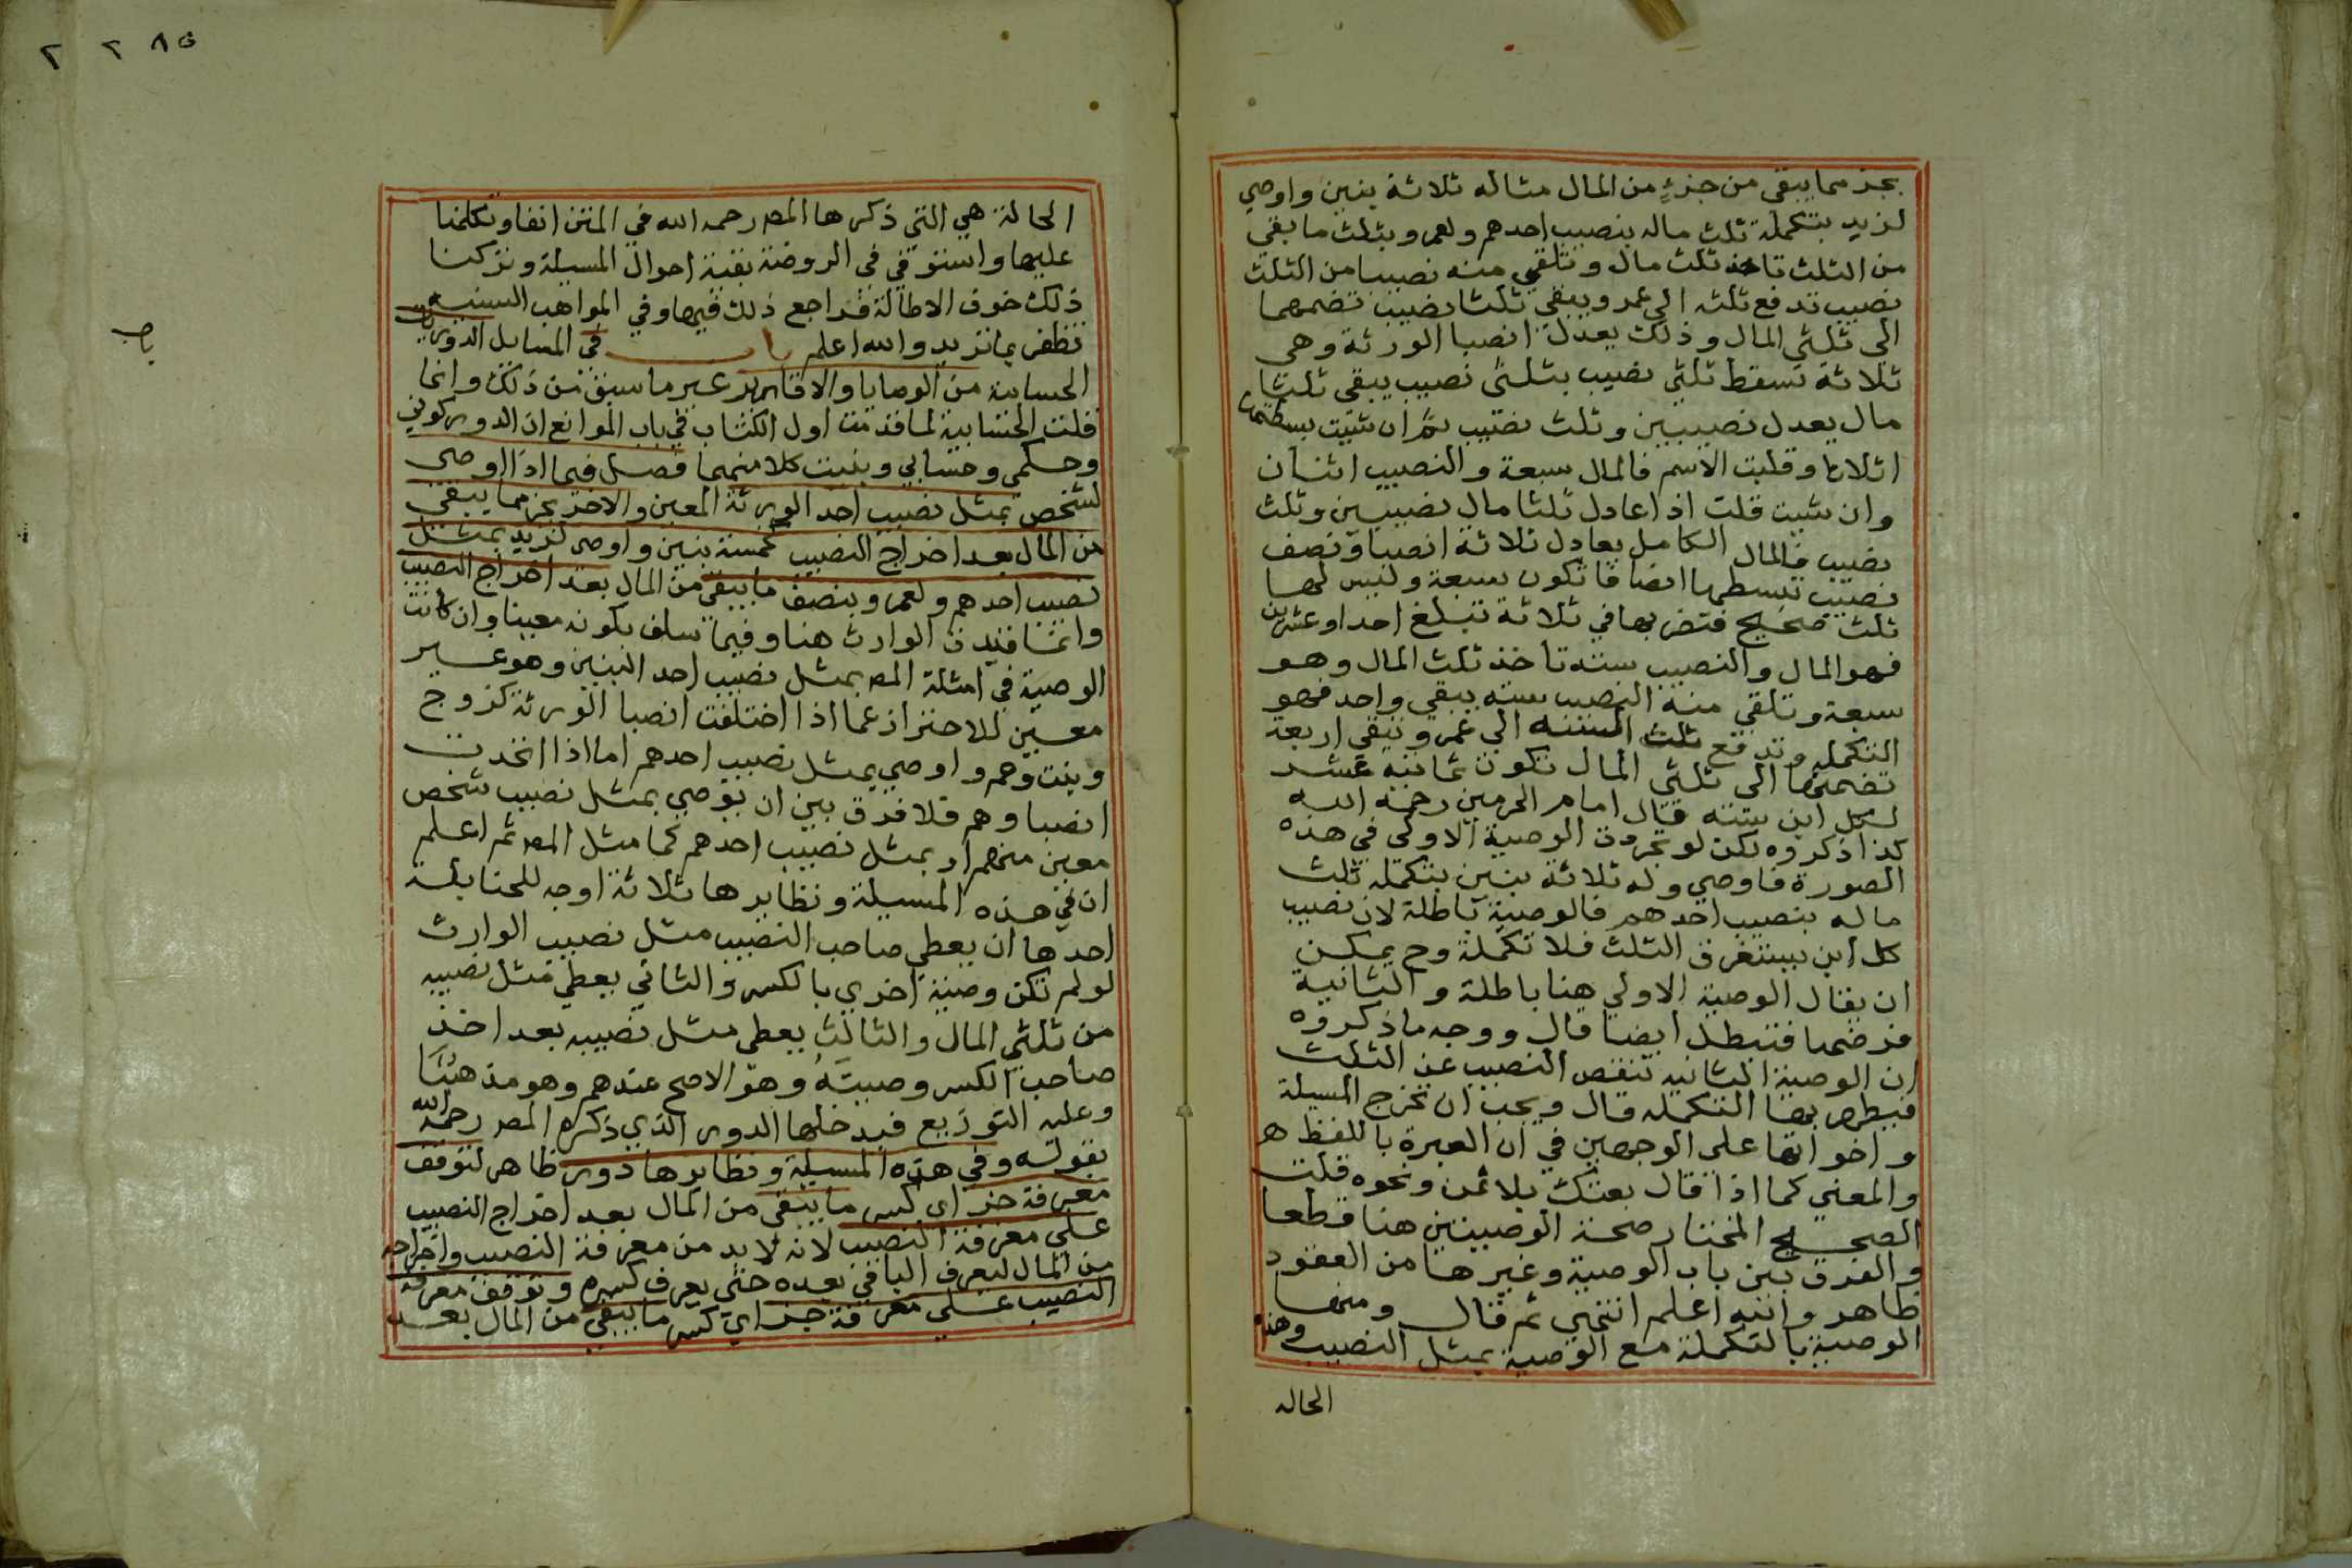 بجزء مما يبقى من جزءٍ من المال مثاله ثلاثة بنين واوصي
لزيد بتكملة ثلث ماله بنصيب احدهم ولعمرو بثلث ما بقي
من الثلث تاخذ ثلث مال وتلقي منه نصيبا من الثلث
نصيب تدفع ثلثه الي عمرو ويبقي ثلثا نصيب تضمهما
الى ثلثي المال وذلك يعدل انصبا الورثة وهي
ثلاثة تسقط ثلثي نصيب بثلثي نصيب يبقى ثلثا
مال يعدل نصيبين وثلث نصيب ثم ان شيت بسطتها
اثلاثا وقلبت الاسم فالمال سبعة والنصيب اثنان
وان شيت قلت اذا عادل ثلثا مال نصيبين وثلث
نصيب فالمال الكامل يعادل ثلاثة انصبا ونصف
نصيب تبسطها انصافا تكون سبعة وليس لها
ثلث صحيح فتضربها في ثلاثة تبلغ احدا وعشرين
فهو المال والنصيب ستة تاخذ ثلث المال وهو
سبعة وتلقي منه النصيب سته يبقي واحد فهو
التكمله وتدفع ثلث الستة الي عمرو وتبقي اربعة
تضمها الى ثلثي المال تكون ثمانيه عشر
لكل ابن ستة قال امام الحرمين رحمه الله
كذا ذكروه لكن لو تجردت الوصية الاولى في هذه
الصورة فاوصي وله ثلاثة بنين بتكملة ثلث
ماله بنصيب احدهم فالوصية باطلة لان نصيب
كل ابن يستغرق الثلث فلا تكملة وح يمكن
ان يقال الوصية الاولي هنا باطلة والثانية
فرضها فتبطل ايضا قال ووجه ما ذكروه
ان الوصية الثانيه تنقص النصيب عن الثلث
فيظهر بها التكمله قال ويجب ان تخرج المسيلة
واخواتها على الوجهين في ان العبرة باللفظ ه
والمعني كما اذا قال بعتك بلا ثمن ونحوه قلت
الصحيح المختار صحة الوصيتين هنا قطعا
والفرق بين باب الوصية وغيرها من العقود
ظاهر والله اعلم انتهي ثم قال ومنها
الوصية بالتكملة مع الوصية بمثل النصيب وهذه
الحاله
٢ ٢ ٨٥
الحالة هي التي ذكرها المص رحمه الله في المتن انفا وتكلمنا
عليها واستوفي في الروضة بقية احوال المسيلة وتركنا
ذلك خوف الاطالة فراجع ذلك فيها وفي المواهب السنيه
تظفر بما تريد والله اعلم باب في المسايل الدوريات
الحسابية من الوصايا والاقارير غير ما سبق من ذلك وانما
قلت الحسابية لما قدمت اول الكتاب في باب الموانع ان الدور كوني
وحكمي وحسابي وبينت كلا منهما فصل فيما اذا اوصى
لشخص بمثل نصيب احد الورثة المعين والاخر بجز مما يبقي
من المال بعد اخراج النصيب كخمسة بنين واوصى لزيد بمثل
نصيب احدهم ولعمرو بنصف ما يبقى من المال بعد اخراج النصيب
وانما قيدت الوارث هنا وفيما سلف بكونه معينا وان كانت
الوصية في امثلة المص بمثل نصيب احد البنين وهو غير
معين للاحتراز عما اذا اختلفت انصبا الورثة كزوج
وبنت وعم واوصي بمثل نصيب احدهم اما اذا اتحدت
انصباوهم فلا فرق بين ان يوصي بمثل نصيب شخص
معين منهم او بمثل نصيب احدهم كما مثل المص ثم اعلم
ان في هذه المسيلة ونظايرها ثلاثة اوجه للحنابلة
احدها ان يعطي صاحب النصيب مثل نصيب الوارث
لو لم تكن وصية اخري بالكسر والثاني يعطي مثل نصيبه
من ثلثي المال والثالث يعطى مثل نصيبه بعد اخذ
صاحب الكسر وصيته وهو الاصح عندهم وهو مذهبنا
وعليه التوزيع فيدخلها الدور الذي ذكره المص رحمه الله
بقوله وفي هذه المسيلة ونظايرها دور ظاهر لتوقف
معرفة جز اي كسر ما يبقي من المال بعد اخراج النصيب
على معرفة النصيب لانه لا بد من معرفة النصيب واخراجه
من المال ليعرف الباقي بعده حتى يعرف كسره وتوقف معرفة
النصيب على معرفة جز اي كسر ما يبقي من المال بعد